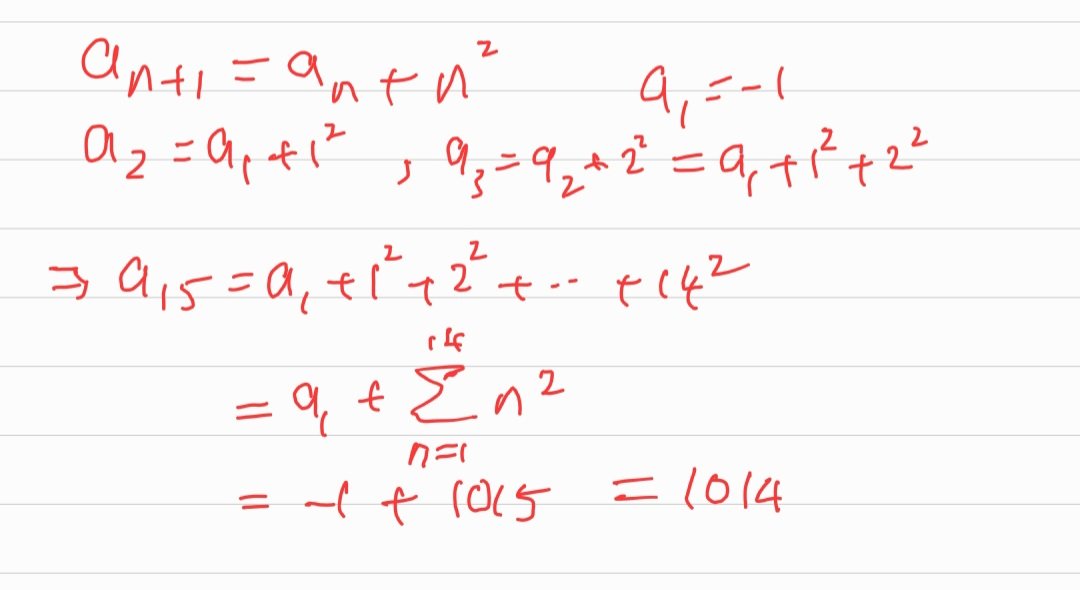 aₙ₊₁ = aₙ + n² a₁ = -1
a₂ = a₁ + 1² , a₃ = a₂ + 2² = a₁ + 1² + 2²
⇒ a₁₅ = a₁ + 1² + 2² + ·· + 14²
= a₁ + ∑ₙ₌₁¹⁴ n²
= -1 + 1015 = 1014